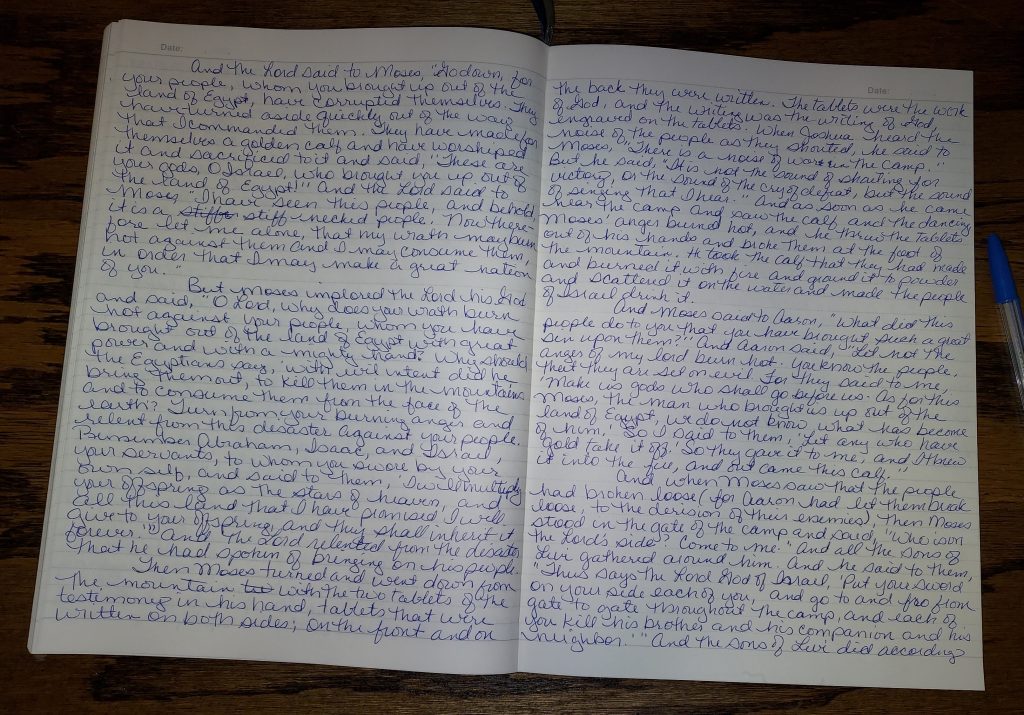 Date:
And the Lord said to Moses, "Go down, for
your people, whom you brought up out of the
land of Egypt, have corrupted themselves. They
have turned aside quickly out of the way
that I commanded them. They have made for
themselves a golden calf and have worshiped
it and sacrificed to it and said, "These are
your gods, O Israel, who brought you up out of
the land of Egypt!" And the Lord said to
Moses "I have seen this people, and behold,
it is a stiffn stiff-necked people. Now there-
fore let me alone, that my wrath may burn
hot against them and I may consume them,
in order that I may make a great nation
of you."
But Moses implored the Lord his God
and said, "O Lord, why does your wrath burn
hot against your people, whom you have
brought out of the land of Egypt with great
power and with a mighty hand? Why should
the Egyptians say, 'with evil intent did he
bring them out, to kill them in the mountains
and to consume them from the face of the
earth'? Turn from your burning anger and
relent from this disaster against your people.
Remember Abraham, Isaac, and Israel,
your servants, to whom you swore by your
own self, and said to them, 'I will multiply
your offspring as the stars of heaven, and
all this land that I have promised I will
give to your offspring, and they shall inherit it
forever.'" And the Lord relented from the disaster
that he had spoken of bringing on his people.
Then Moses turned and went down from
the mountain with the two tablets of the
testimony in his hand, tablets that were
written on both sides; on the front and on
Date:
the back they were written. The tablets were the work
of God, and the writing was the writing of God,
engraved on the tablets. When Joshua heard the
noise of the people as they shouted, he said to
Moses, "There is a noise of war in the camp."
But he said, "It is not the sound of shouting for
victory, or the sound of the cry of defeat, but the sound
of singing that I hear." And as soon as he came
near the camp and saw the calf and the dancing
Moses' anger burned hot, and he threw the tablets
out of his hands and broke them at the foot of
the mountain. He took the calf that they had made
and burned it with fire and ground it to powder
and scattered it on the water and made the people
of Israel drink it.
And Moses said to Aaron, "What did this
people do to you that you have brought such a great
sin upon them?" And Aaron said, "Let not the
anger of my lord burn hot. You know the people,
that they are set on evil. For they said to me,
'Make us gods who shall go before us. As for this
Moses, the man who brought us up out of the
land of Egypt, we do not know what has become
of him.' So I said to them, 'Let any who have
gold take it off.' So they gave it to me, and I threw
it into the fire, and out came this calf."
And when Moses saw that the people
had broken loose (for Aaron had let them break
loose, to the derision of their enemies), then Moses
stood in the gate of the camp and said, "Who is on
the Lord's side? Come to me." And all the sons of
Levi gathered around him. And he said to them,
"Thus says the Lord God of Israel, 'Put your sword
on your side each of you, and go to and fro from
gate to gate throughout the camp, and each of
you kill his brother and his companion and his
neighbor.'" And the sons of Levi did according